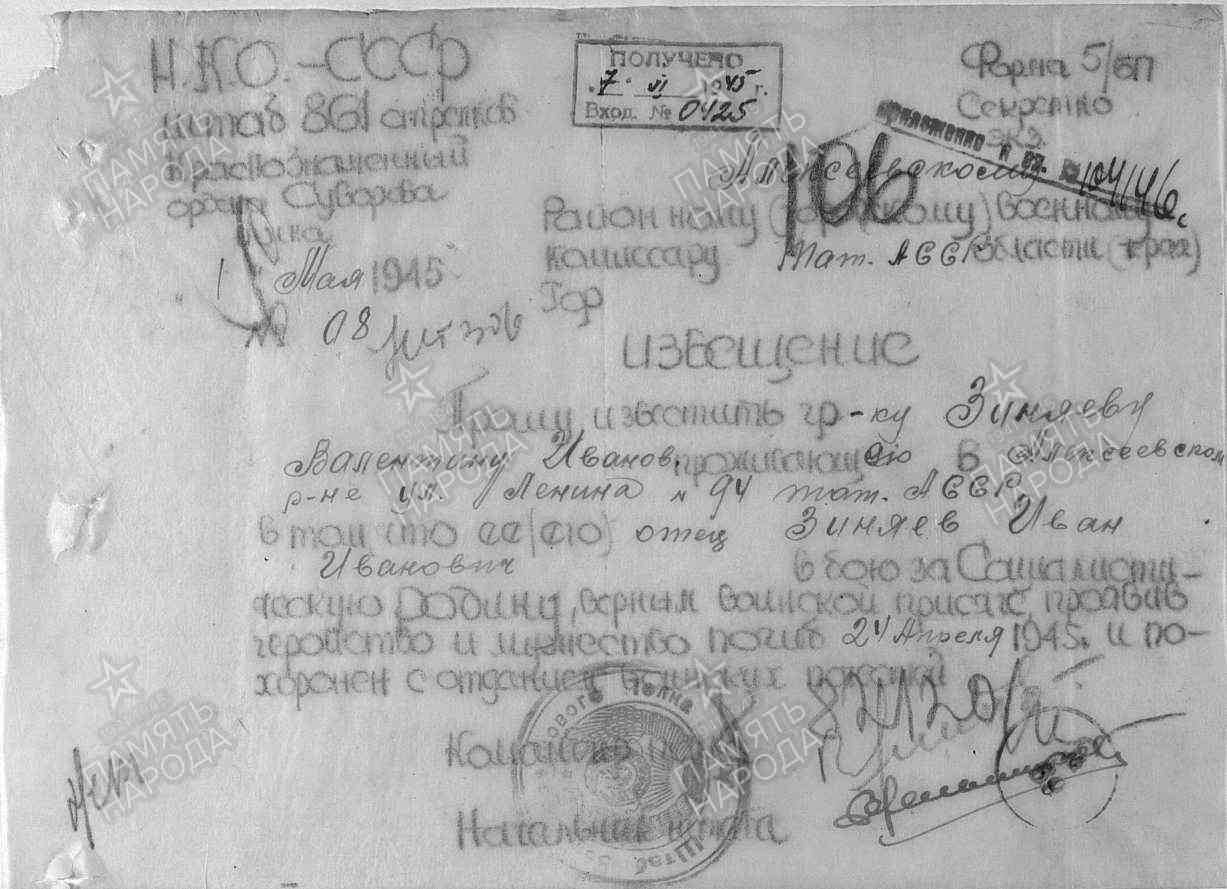 Н.К.О. - СССР
штаб 861 стрелков
Краснознаменный
ордена Суворова
полка
1 Мая 1945
№ 08
ПОЛУЧЕНО
7 VI 1945 г.
Вход. № 0425
Форма 5/БП
Секретно
экз.
приложение к вх. № 104146с
106
Алексеевскому
Районному (городскому) военному
комиссару Тат. АССР области (края)
Гор
ИЗВЕЩЕНИЕ
Прошу известить гр-ку Зиняеву
Валентину Иванов. проживающ ею в Алексеевском
р-не ул. Ленина № 94 тат. АССР.
в том что ее (его) отец Зиняев Иван
Иванович в бою за Социалисти-
ческую Родину, верный воинской присяге, проявив
геройство и мужество погиб 24 Апреля 1945. и по-
хоронен с отданием воинских почестей
82120/
Командир полка
Начальник штаба
ового полка
Штаб
ПАМЯТЬ
НАРОДА